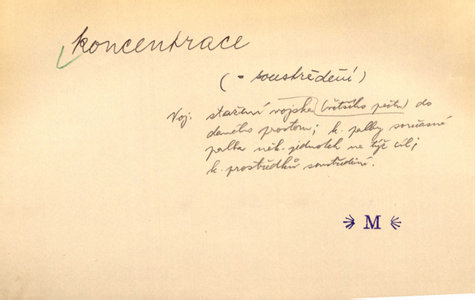 koncentrace
(= soustředění)
Voj. stažení vojska (většího počtu) do
daného prostoru; k. palby současná
palba něk. jednotek na týž cíl;
k. prostředků soustředění.
M